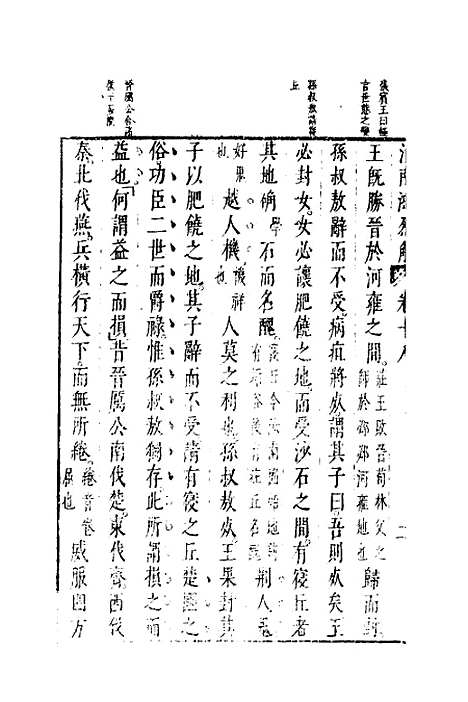 張賓王曰極
言世態之變
孫叔敖請寢
丘
晉厲公合諸
淮南鴻烈解 卷十八 二
王既勝晉於河雍之間 莊王敗晉荀林父之師於邲邲河雍地也 歸而封
孫叔敖辭而不受病疽將死謂其子曰吾則死矣王
必封女女必讓肥饒之地而受沙石之間有寢丘者
其地确 學 石而名醜 荆人鬼
好鬼也 越人機 禨祥也 人莫之利也孫叔敖死王果封其
子以肥饒之地其子辭而不受請有寢之丘楚國之
俗功臣二世而爵祿惟孫叔敖獨存此所謂損之而
益也何謂益之而損昔晉厲公南伐楚東伐齊西伐
秦北伐燕兵橫行天下而無所綣 綣音卷屈也 威服四方